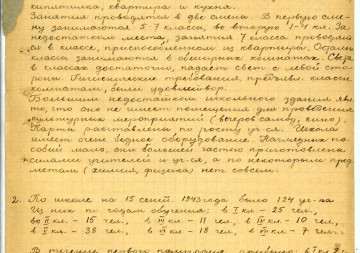 кипятилка, квартира и кухня.
Занятия проводятся в две смены. В первую сме-
ну занимаются 5-7 классы, во вторую 1-4 кл. За
недостатком места, занятия 7 класса проводят-
ся в классе, приспособленном из квартиры. Осталь.
классы занимаются в обширных комнатах. Света
в классах достаточно, падает свет с левой сто-
роны. Гигиенические требования, предъявл. классн.
комнатам, были удовлетвор.
Большим недостатком школьного здания явл.
то, что оно не имеет помещения для проведения
культурных мероприятий (вечеров самод., кино).
Парты расставлены по росту уч-ся. Школа
имеет очень бедное оборудование. Наглядных по-
собий мало, они большей частью приготовлены
силами учителей и уч-ся, а по некоторым пред-
метам (химия, физика) нет совсем.
2. По школе на 15 сент. 1943 года было 124 уч-ка
Из них по годам обучения: в I кл - 25 чел,
во II кл. - 15 чел., в III кл - 11 чел, в IV кл - 10 чел.,
в V кл - 38 чел, в VI кл - 18 чел, в VII кл - 7 чел.
В течение первого полугодия прибыло: в I кл 2